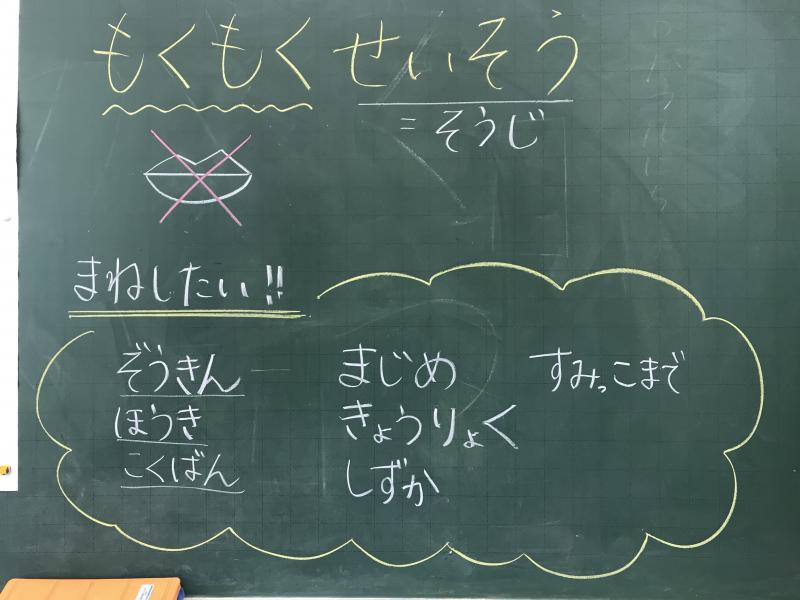 もくもく せいそう
= そうじ
まねしたい!!
ぞうきん
ほうき
こくばん
まじめ
きょうりょく
しずか
すみっこまで